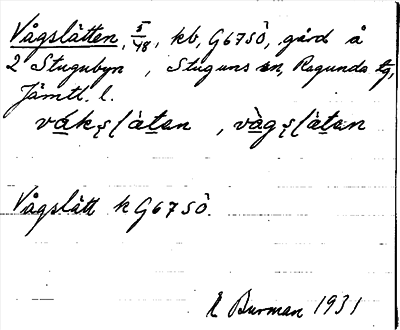 Vågslåtten, 5/48, kb, G67SÖ, gård å
2 Stugubyn, Stuguns sn, Ragunda tg,
Jämtl. l.
vákʂlàtan, vàgʂlàtan
Vågslått k G67SÖ.
E Burman 1931